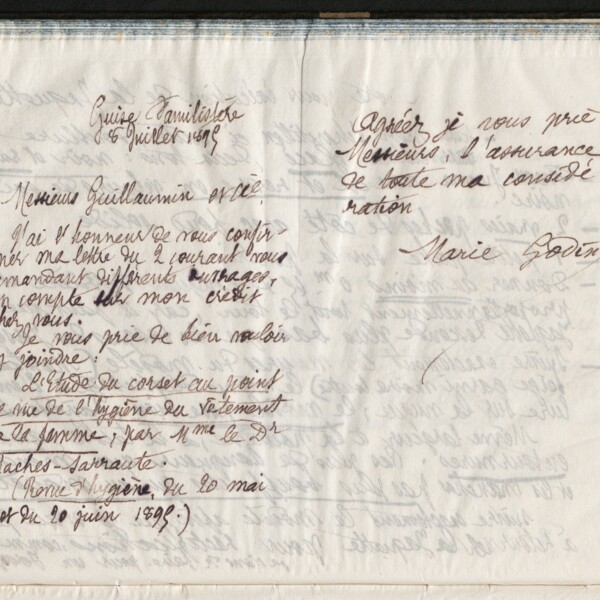 Guise Familistère
8 Juillet 1895
Messieurs Guillaumin et Cie,
J'ai l'honneur de vous confir-
mer ma lettre du 2 courant vous
demandant différents ouvrages,
en compte sur mon crédit
chez vous.
Je vous prie de bien vouloir
y joindre :
L'Etude du corset au point
de vue de l'hygiène du vêtement
de la femme, par Mme le Dr
Gaches-Sarraute.
(Revue d'hygiène, du 20 mai
et du 20 juin 1895.)
Agréez je vous prie
Messieurs, l'assurance
de toute ma considé
ration
Marie Godin